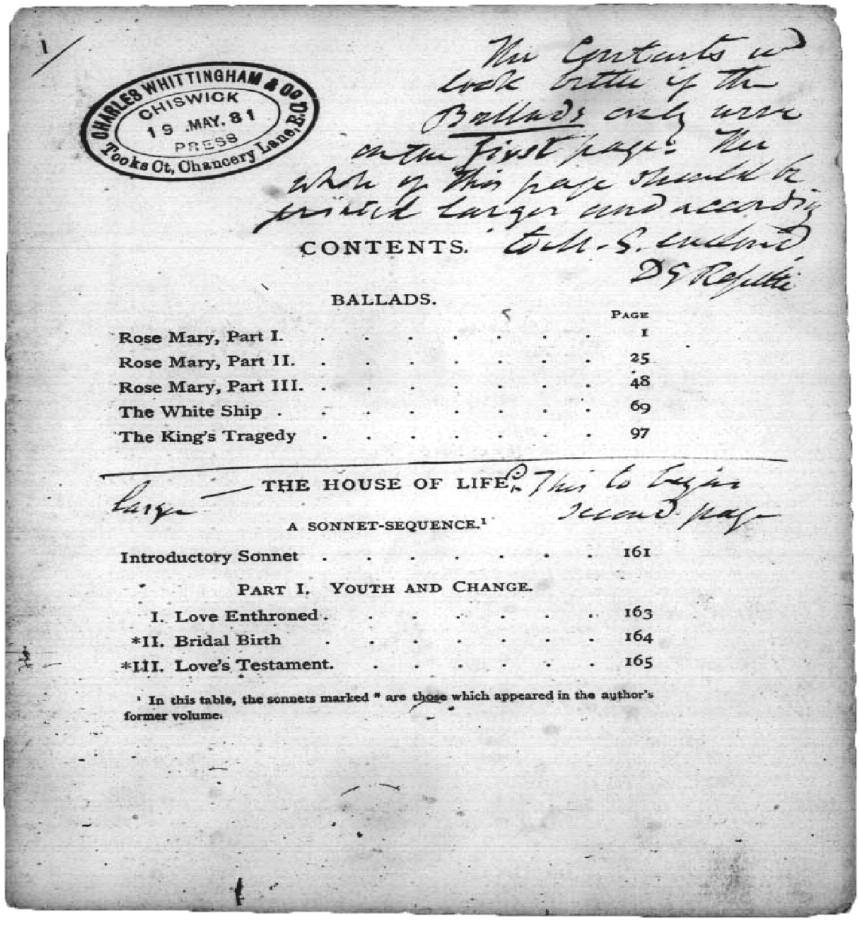 1
CHARLES WHITTINGHAM & Co
CHISWICK
19 MAY. 81
PRESS
Tooks Ct, Chancery Lane, E.C.
The Contents wd
look better if the
Ballads only were
on the first page. The
whole of this page should be
printed larger and according
to M.S. enclosed
D G Rossetti
CONTENTS.
BALLADS.
PAGE
Rose Mary, Part I. . . . . . . . 1
Rose Mary, Part II. . . . . . . . 25
Rose Mary, Part III. . . . . . . . 48
The White Ship . . . . . . . . 69
The King's Tragedy . . . . . . . 97
larger — THE HOUSE OF LIFE: This to begin
second page
A SONNET-SEQUENCE.¹
Introductory Sonnet . . . . . . . 161
PART I. YOUTH AND CHANGE.
I. Love Enthroned . . . . . . . 163
*II. Bridal Birth . . . . . . 164
*III. Love's Testament. . . . . . . 165
¹ In this table, the sonnets marked * are those which appeared in the author's
former volume.